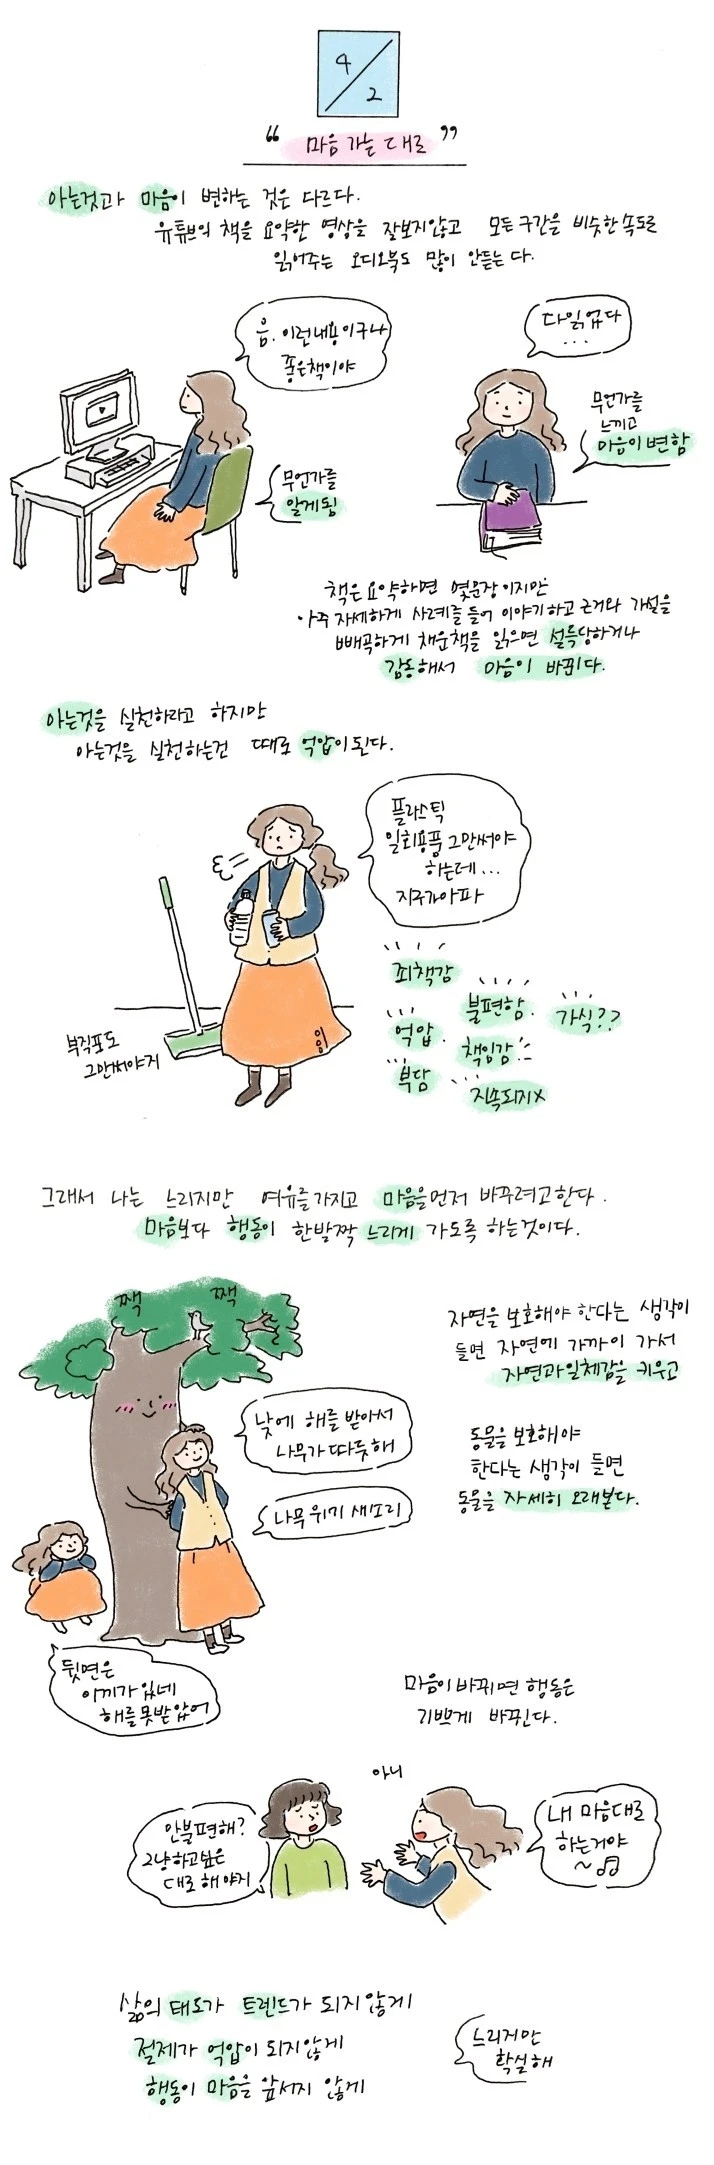 4/2
“마음 가는 대로”
아는것과 마음이 변하는 것은 다르다.
유튜브의 책을 요약한 영상을 잘보지않고 모든 구간을 비슷한 속도로
읽어주는 오디오북도 많이 안듣는다.
음. 이런내용이구나
좋은책이야
무언가를
알게됨
다읽었다
...
무언가를
느끼고
마음이 변함
책은 요약하면 몇문장이지만
아주 자세하게 사례를 들어 이야기하고 근거와 가설을
빼곡하게 채운책을 읽으면 설득당하거나
감동해서 마음이 바뀐다.
아는것을 실천하라고 하지만
아는것을 실천하는건 때로 억압이된다.
플라스틱
일회용품 그만써야
하는데...
지구가아파
부직포도
그만써야지
죄책감
불편함.
가식??
억압.
책임감
부담
지속되지x
그래서 나는 느리지만 여유를 가지고 마음을 먼저 바꾸려고한다.
마음보다 행동이 한발짝 느리게 가도록 하는것이다.
짹 짹
자연을 보호해야 한다는 생각이
들면 자연에 가까이 가서
자연과일체감을 키우고
낮에 해를 받아서
나무가 따듯해
나무 위키 새소리
동물을 보호해야
한다는 생각이 들면
동물을 자세히 오래본다.
뒷면은
이끼가 있네
해를 못받았어
마음이 바뀌면 행동은
기쁘게 바뀐다.
안불편해?
그냥하고싶은
대로 해야지
아니
내 마음대로
하는거야
~♫
삶의 태도가 트렌드가 되지않게
절제가 억압이 되지않게
행동이 마음을 앞서지 않게
느리지만
확실해